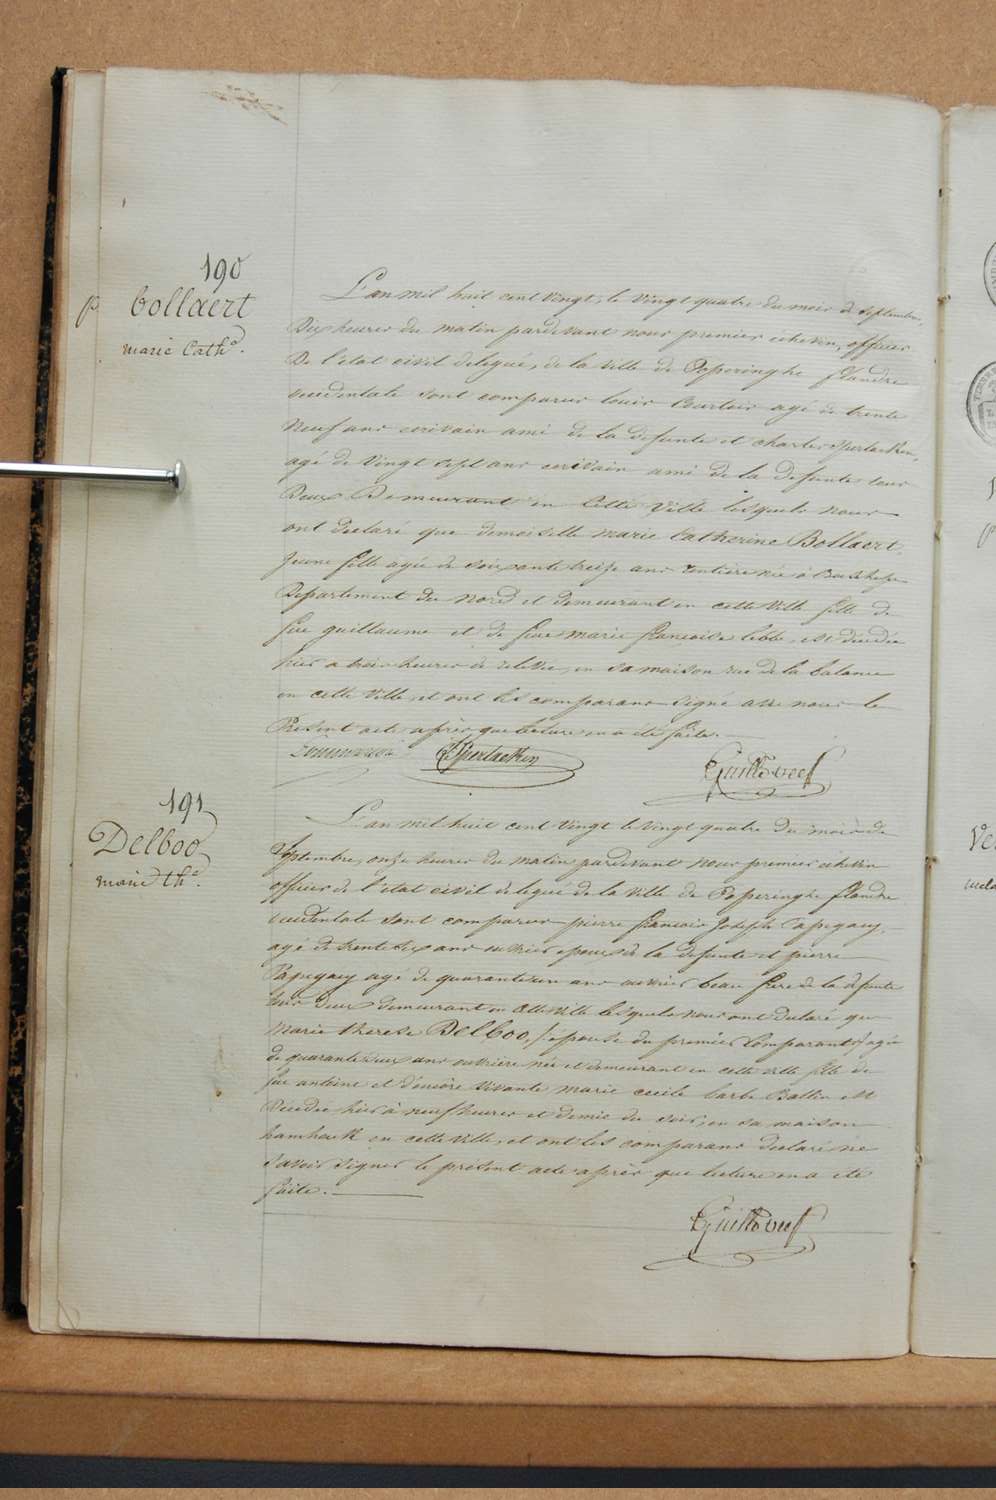 190
bollaert
p
marie Cathe.
L'an mil huit cent vingt, le vingt quatre du mois de septembre,
Dix heures du matin pardevant nous premier échevin, officier
De l'état civil delegué, de la ville de Poperinghe flandre
occidentale sont comparus louis agé de trente
Neuf ans ecrivain ami de la defunte et charles Sperlaeken,
agé de vingt sept ans ecrivain ami de la defunte tous
Deux Demeurant en Cette Ville lesquels nous
ont declaré que demoiselle marie Catherine Bollaert,
Jeune fille agée de soixante treize ans rentière née à
Departement du Nord et demeurant en cette ville fille de
feu guillaume et de feue marie francoise lebbe, est décédée
hier a trois heures de relevée, en sa maison rue de la balance
en cette ville, et ont les comparans signé avec nous le
Present acte après que lecture en a été faite.
Sperlaeken
191
Delboo
marie the.
L'an mil huit cent vingt le vingt quatre du mois de
Septembre, onze heures du matin pardevant nous premier échevin
officier de l'état civil delegué de la ville de Poperinghe flandre
occidentale sont comparus pierre francois Joseph Papegaey,
agé de trente six ans ouvrier epoux de la defunte et pierre
Papegaey agé de quarante un ans ouvrier beau frere de la defunte
tous deux demeurant en Cette Ville lesquels nous ont declaré que
Marie therese Delboo, épouse du premier Comparant agée
de quarante deux ans ouvrière née et demeurant en cette ville fille de
feu antoine et d'encore vivante marie cecile barbe Battin est
Décédée hier à neuf heures et demie du soir, en sa maison
hamhoek en cette ville, et ont les comparans declaré ne
savoir signer le présent acte après que lecture en a été
faite.